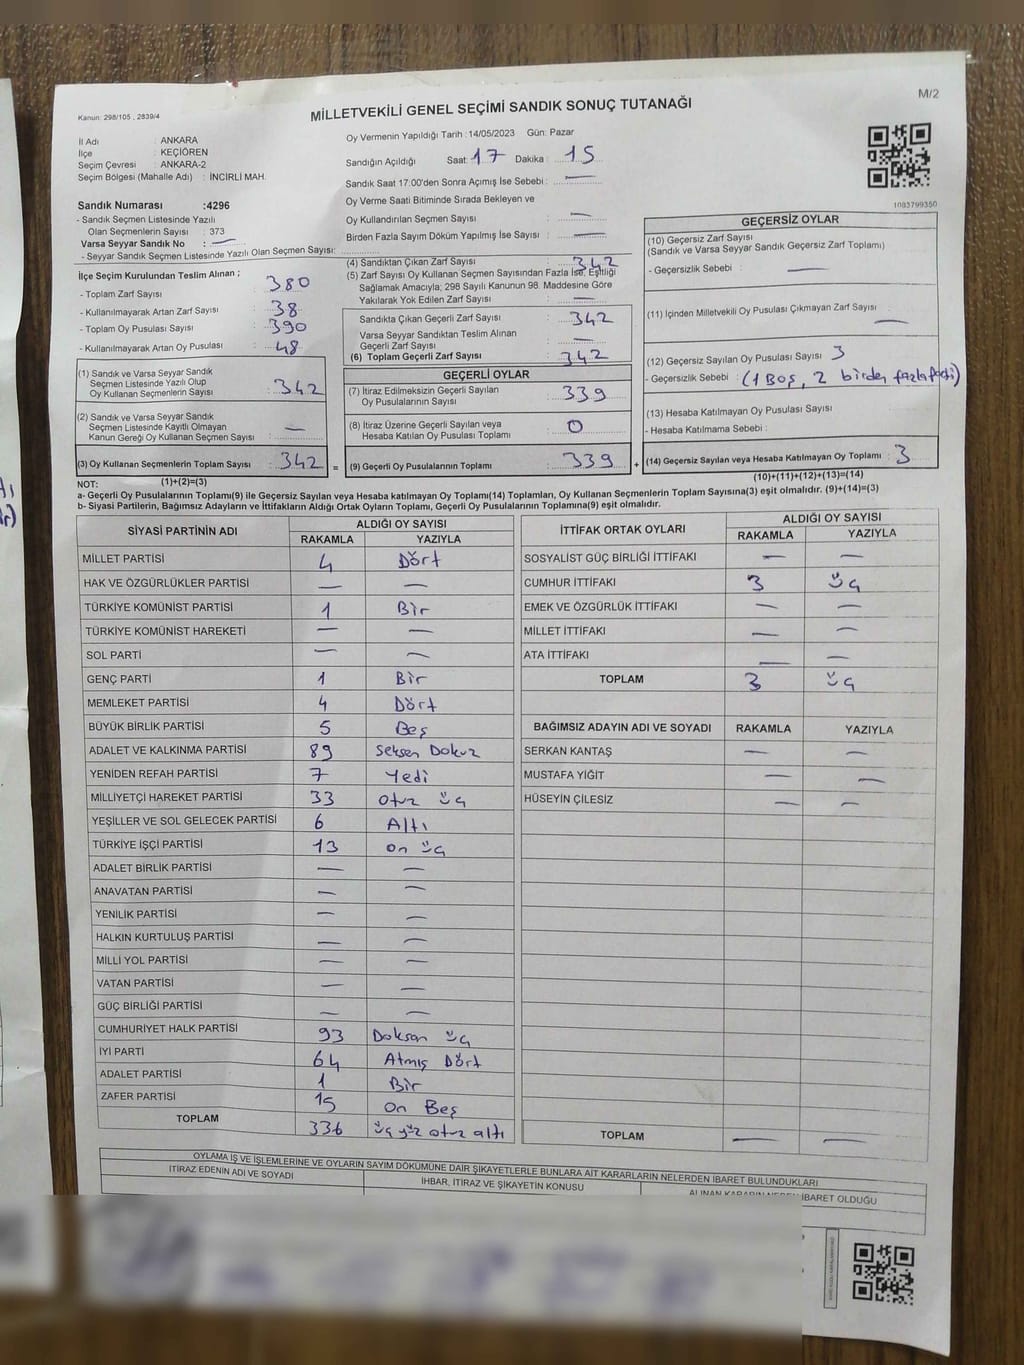 M/2
Kanun: 298/105 , 2839/4
MİLLETVEKİLİ GENEL SEÇİMİ SANDIK SONUÇ TUTANAĞI
İl Adı : ANKARA
İlçe : KEÇİÖREN
Seçim Çevresi : ANKARA-2
Seçim Bölgesi (Mahalle Adı) : İNCİRLİ MAH.
Sandık Numarası :4296
- Sandık Seçmen Listesinde Yazılı
Olan Seçmenlerin Sayısı : 373
Varsa Seyyar Sandık No : —
- Seyyar Sandık Seçmen Listesinde Yazılı Olan Seçmen Sayısı:
Oy Vermenin Yapıldığı Tarih : 14/05/2023 Gün: Pazar
Sandığın Açıldığı Saat: 17 Dakika : 15
Sandık Saat 17:00'den Sonra Açımış İse Sebebi : —
Oy Verme Saati Bitiminde Sırada Bekleyen ve
Oy Kullandırılan Seçmen Sayısı : —
Birden Fazla Sayım Döküm Yapılmış İse Sayısı : —
1083799350
İlçe Seçim Kurulundan Teslim Alınan ;
- Toplam Zarf Sayısı : 380
- Kullanılmayarak Artan Zarf Sayısı : 38
- Toplam Oy Pusulası Sayısı : 390
- Kullanılmayarak Artan Oy Pusulası : 48
(1) Sandık ve Varsa Seyyar Sandık
Seçmen Listesinde Yazılı Olup
Oy Kullanan Seçmenlerin Sayısı : 342
(2) Sandık ve Varsa Seyyar Sandık
Seçmen Listesinde Kayıtlı Olmayan
Kanun Gereği Oy Kullanan Seçmen Sayısı : —
(3) Oy Kullanan Seçmenlerin Toplam Sayısı : 342 =
(4) Sandıktan Çıkan Zarf Sayısı : 342
(5) Zarf Sayısı Oy Kullanan Seçmen Sayısından Fazla İse, Eşitliği
Sağlamak Amacıyla; 298 Sayılı Kanunun 98. Maddesine Göre
Yakılarak Yok Edilen Zarf Sayısı : —
Sandıkta Çıkan Geçerli Zarf Sayısı : 342
Varsa Seyyar Sandıktan Teslim Alınan
Geçerli Zarf Sayısı : —
(6) Toplam Geçerli Zarf Sayısı : 342
GEÇERLİ OYLAR
(7) İtiraz Edilmeksizin Geçerli Sayılan
Oy Pusulalarının Sayısı : 339
(8) İtiraz Üzerine Geçerli Sayılan veya
Hesaba Katılan Oy Pusulası Toplamı : 0
(9) Geçerli Oy Pusulalarının Toplamı : 339 +
GEÇERSİZ OYLAR
(10) Geçersiz Zarf Sayısı
(Sandık ve Varsa Seyyar Sandık Geçersiz Zarf Toplamı)
- Geçersizlik Sebebi : —
(11) İçinden Milletvekili Oy Pusulası Çıkmayan Zarf Sayısı : —
(12) Geçersiz Sayılan Oy Pusulası Sayısı : 3
- Geçersizlik Sebebi : (1 Boş, 2 birden fazla parti)
(13) Hesaba Katılmayan Oy Pusulası Sayısı :
- Hesaba Katılmama Sebebi :
(14) Geçersiz Sayılan veya Hesaba Katılmayan Oy Toplamı : 3
NOT: (1)+(2)=(3)
(10)+(11)+(12)+(13)=(14)
a- Geçerli Oy Pusulalarının Toplamı(9) ile Geçersiz Sayılan veya Hesaba katılmayan Oy Toplamı(14) Toplamları, Oy Kullanan Seçmenlerin Toplam Sayısına(3) eşit olmalıdır. (9)+(14)=(3)
b- Siyasi Partilerin, Bağımsız Adayların ve İttifakların Aldığı Ortak Oyların Toplamı, Geçerli Oy Pusulalarının Toplamına(9) eşit olmalıdır.
SİYASİ PARTİNİN ADI ALDIĞI OY SAYISI
RAKAMLA YAZIYLA
MİLLET PARTİSİ 4 Dört
HAK VE ÖZGÜRLÜKLER PARTİSİ — —
TÜRKİYE KOMÜNİST PARTİSİ 1 Bir
TÜRKİYE KOMÜNİST HAREKETİ — —
SOL PARTİ — —
GENÇ PARTİ 1 Bir
MEMLEKET PARTİSİ 4 Dört
BÜYÜK BİRLİK PARTİSİ 5 Beş
ADALET VE KALKINMA PARTİSİ 89 Seksen Dokuz
YENİDEN REFAH PARTİSİ 7 Yedi
MİLLİYETÇİ HAREKET PARTİSİ 33 Otuz üç
YEŞİLLER VE SOL GELECEK PARTİSİ 6 Altı
TÜRKİYE İŞÇİ PARTİSİ 13 On üç
ADALET BİRLİK PARTİSİ — —
ANAVATAN PARTİSİ — —
YENİLİK PARTİSİ — —
HALKIN KURTULUŞ PARTİSİ — —
MİLLİ YOL PARTİSİ — —
VATAN PARTİSİ — —
GÜÇ BİRLİĞİ PARTİSİ — —
CUMHURİYET HALK PARTİSİ 93 Doksan üç
İYİ PARTİ 64 Atmış Dört
ADALET PARTİSİ 1 Bir
ZAFER PARTİSİ 15 On Beş
TOPLAM 336 üç yüz otuz altı
İTTİFAK ORTAK OYLARI ALDIĞI OY SAYISI
RAKAMLA YAZIYLA
SOSYALİST GÜÇ BİRLİĞİ İTTİFAKI — —
CUMHUR İTTİFAKI 3 üç
EMEK VE ÖZGÜRLÜK İTTİFAKI — —
MİLLET İTTİFAKI — —
ATA İTTİFAKI — —
TOPLAM 3 üç
BAĞIMSIZ ADAYIN ADI VE SOYADI RAKAMLA YAZIYLA
SERKAN KANTAŞ — —
MUSTAFA YİĞİT — —
HÜSEYİN ÇİLESİZ — —
TOPLAM — —
OYLAMA İŞ VE İŞLEMLERİNE VE OYLARIN SAYIM DÖKÜMÜNE DAİR ŞİKAYETLERLE BUNLARA AİT KARARLARIN NELERDEN İBARET BULUNDUKLARI
İTİRAZ EDENİN ADI VE SOYADI İHBAR, İTİRAZ VE ŞİKAYETİN KONUSU ALINAN KARARIN NEDEN İBARET OLDUĞU